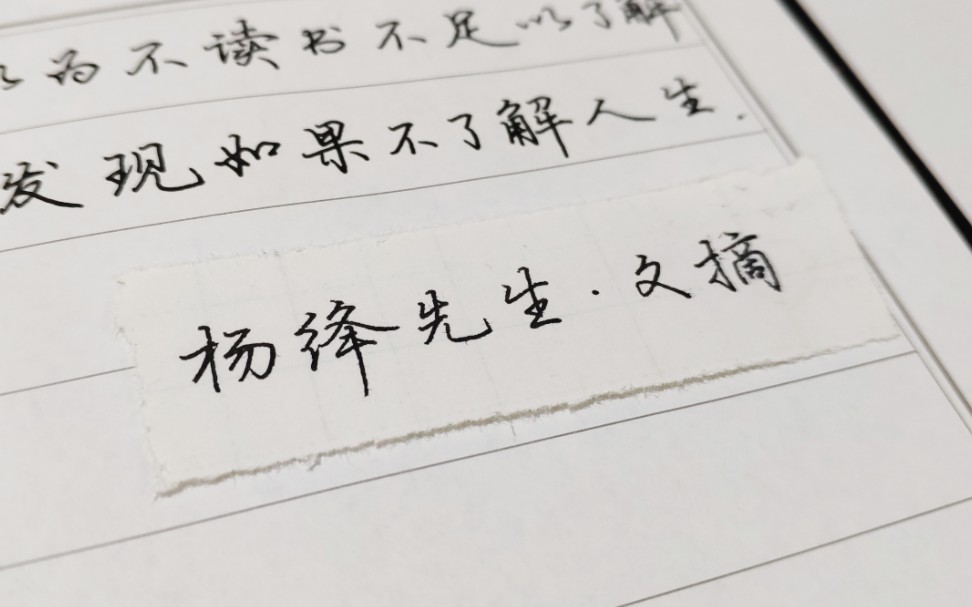 以为不读书不足以了解
发现如果不了解人生.
杨绛先生·文摘